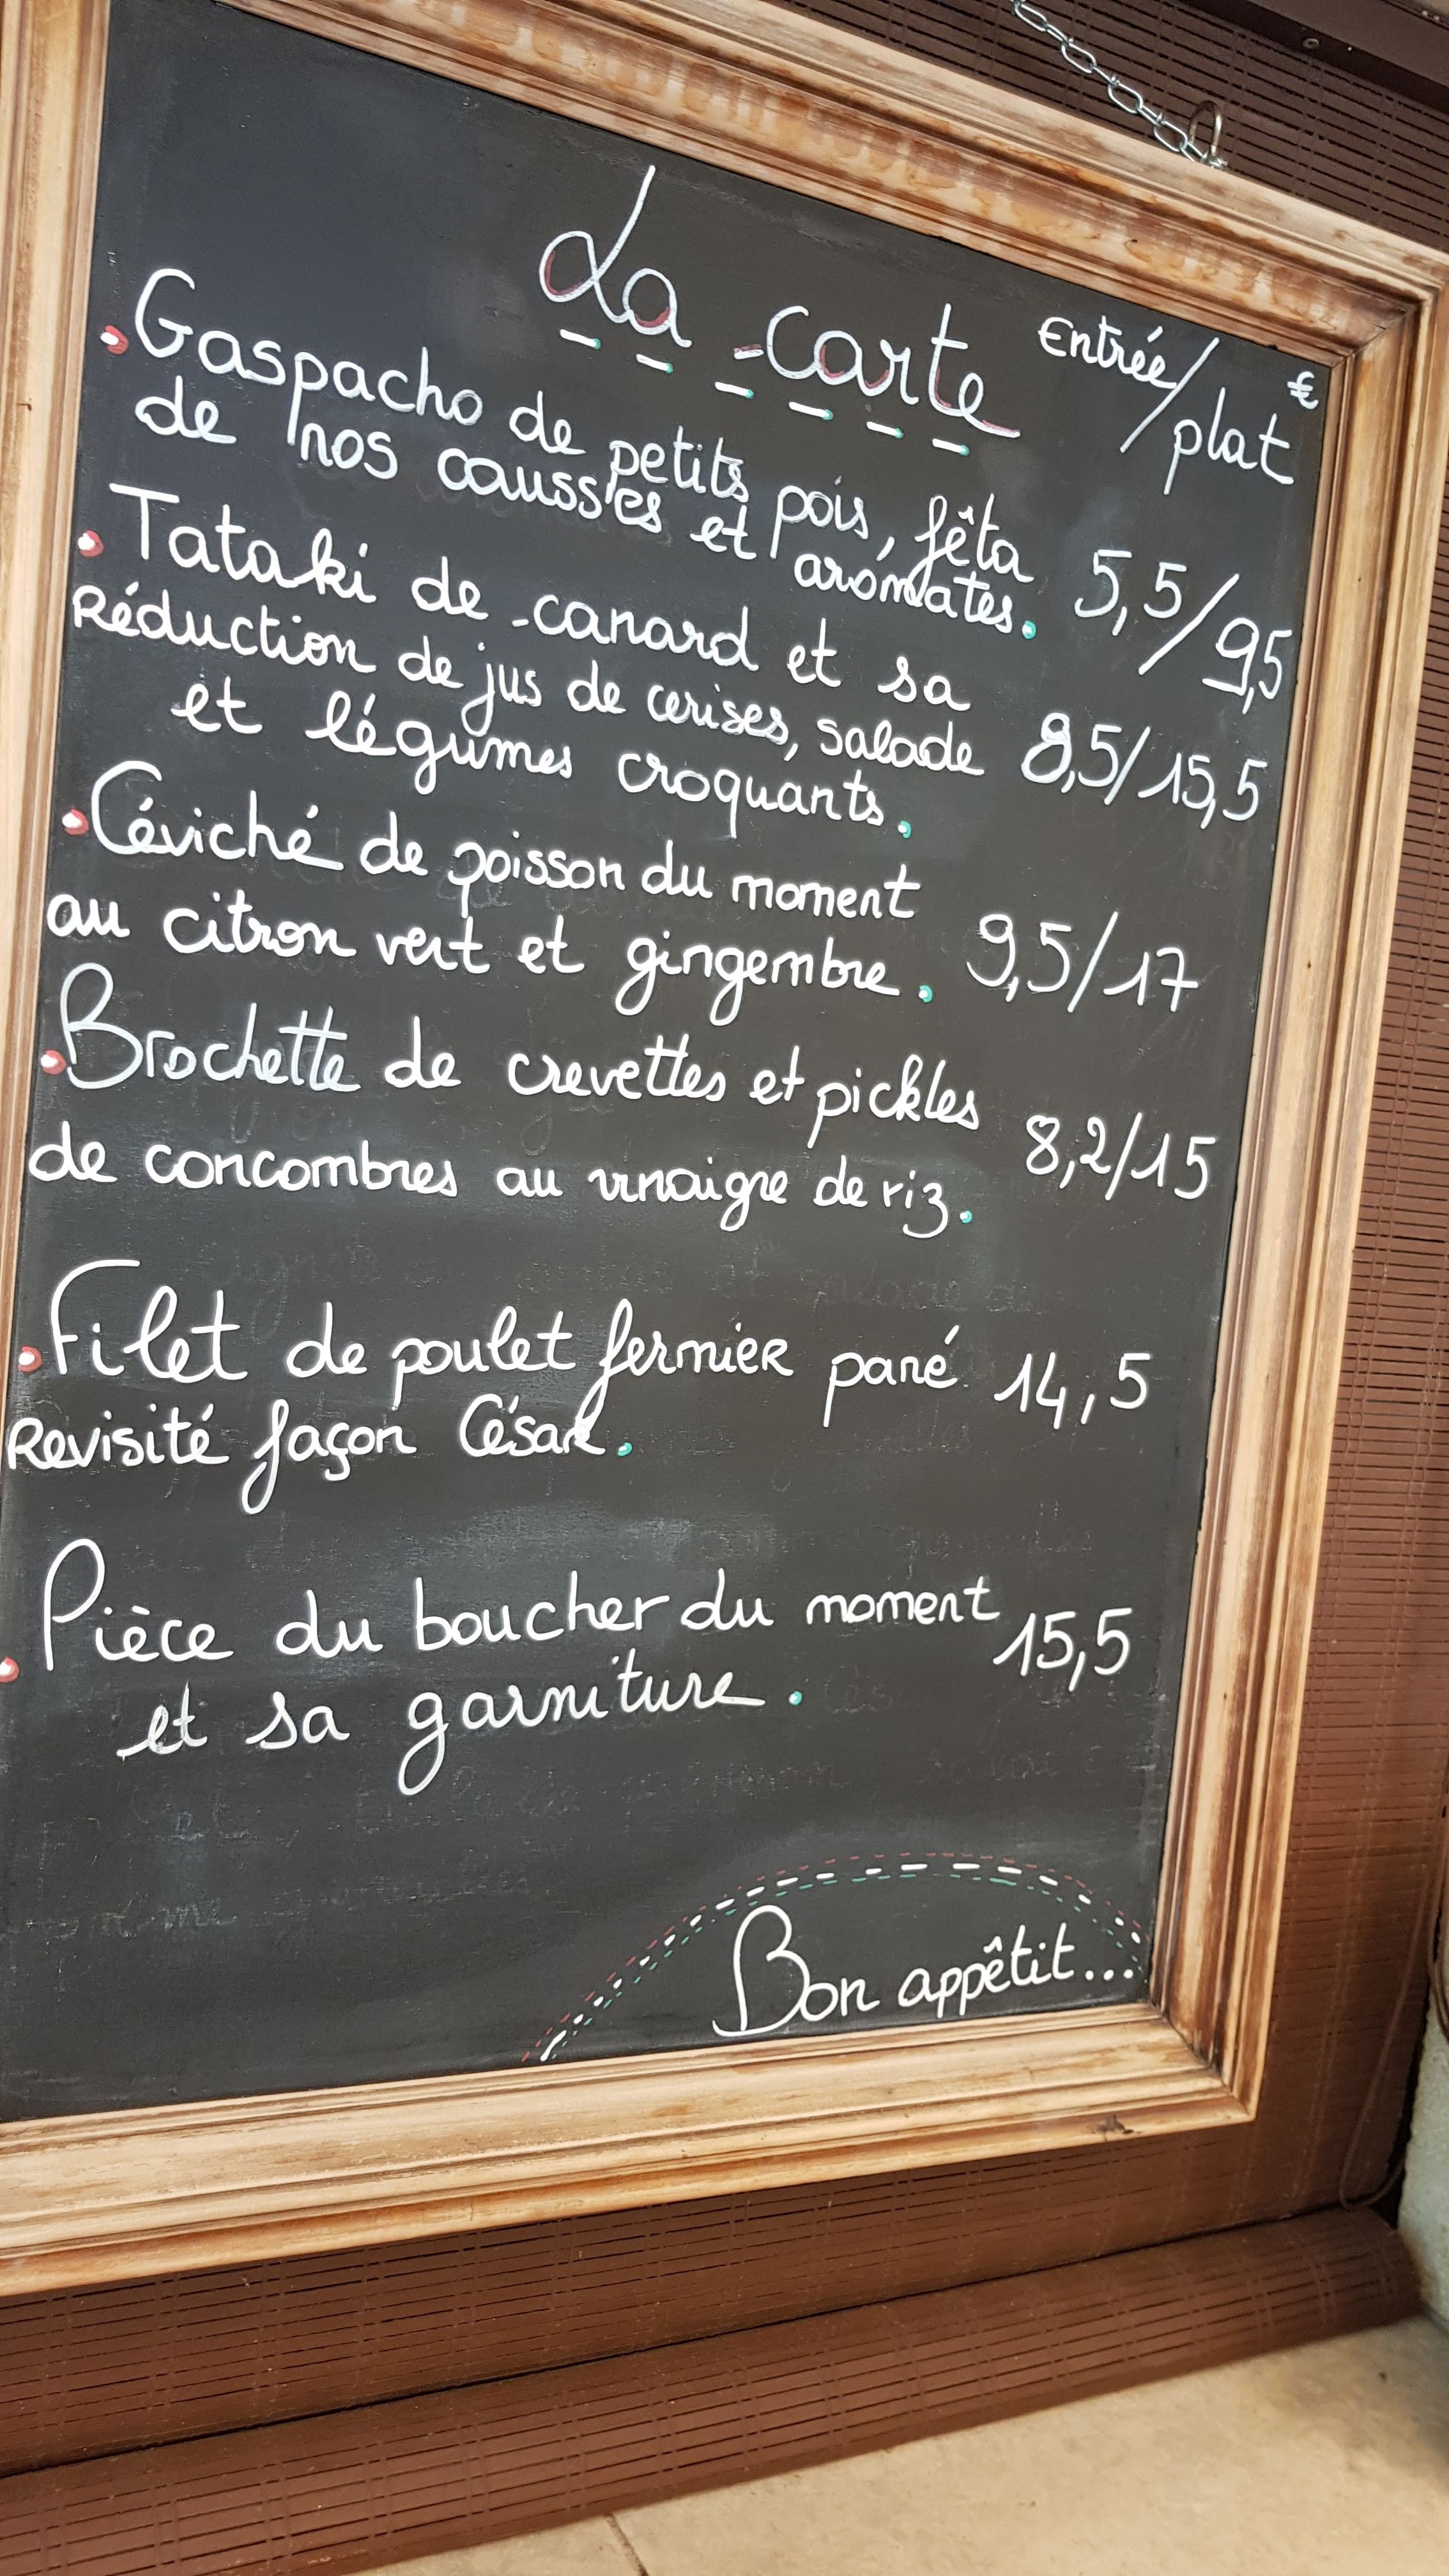 La carte
Entrée/plat €
• Gaspacho de petits pois, fêta
de nos causses et aromates. 5,5/9,5
• Tataki de canard et sa
Réduction de jus de cerises, salade 8,5/15,5
et légumes croquants.
• Céviché de poisson du moment
au citron vert et gingembre. 9,5/17
• Brochette de crevettes et pickles
de concombres au vinaigre de riz. 8,2/15
• Filet de poulet fermier pané 14,5
Revisité façon César.
• Pièce du boucher du moment 15,5
et sa garniture.
Bon appêtit...